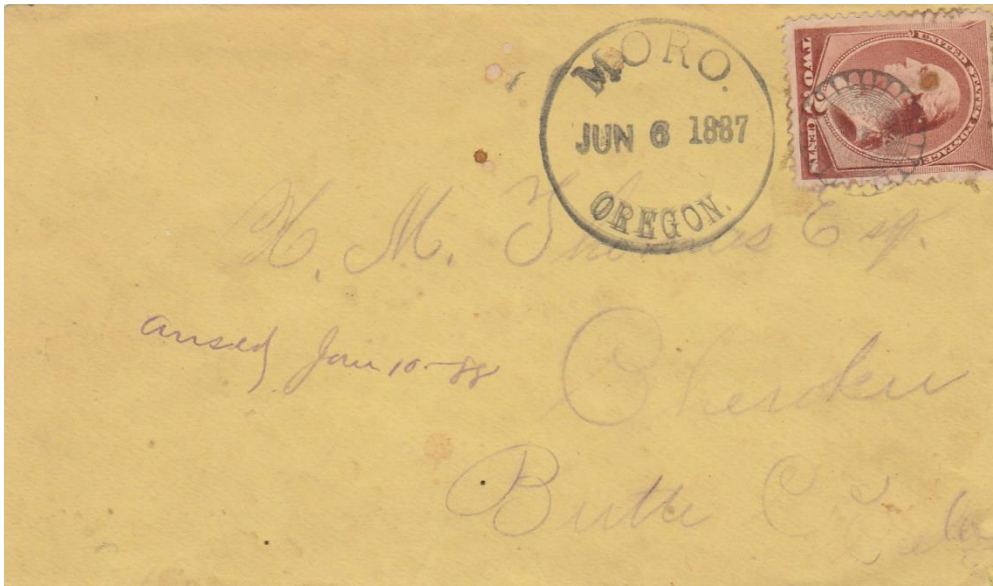 MORO.
JUN 6 1887
OREGON.
UNITED STATES POSTAGE
TWO 2 CENTS
H. M. Thomas Esq.
ansed Jan 10-88
Cherokee
Butte C